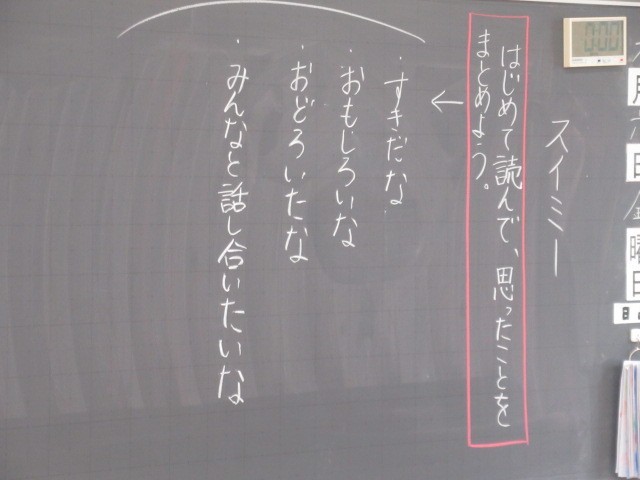 0:00
スイミー
はじめて読んで、思ったことを
まとめよう。
←
・すきだな
・おもしろいな
・おどろいたな
・みんなと話し合いたいな
曜
日